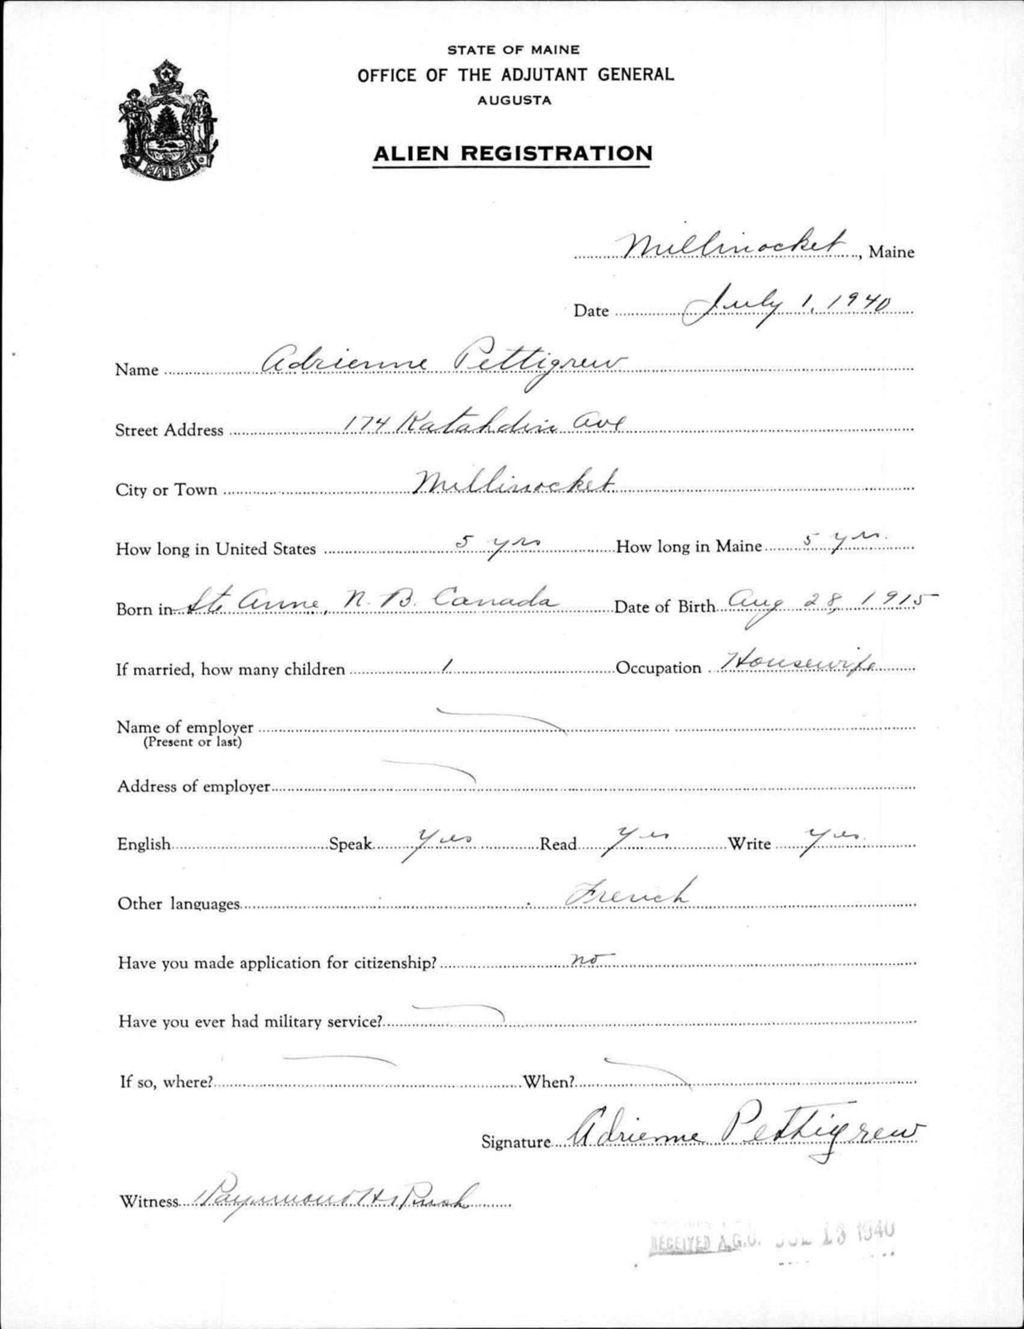 STATE OF MAINE
OFFICE OF THE ADJUTANT GENERAL
AUGUSTA
ALIEN REGISTRATION
MAINE
Millinocket, Maine
Date July 1, 1940
Name Adrienne Pettigrew
Street Address 174 Katahdin Ave
City or Town Millinocket
How long in United States 5 yrs How long in Maine 5 yrs.
Born in Ste Anne, N.B. Canada Date of Birth Aug 28, 1915
If married, how many children 1 Occupation Housewife
Name of employer
(Present or last)
Address of employer
English Speak Yes Read Yes Write Yes.
Other languages French
Have you made application for citizenship? no
Have you ever had military service?
If so, where? When?
Signature Adrienne Pettigrew
Witness Raymond H. Rush
RECEIVED A.G.O. JUL 13 1940